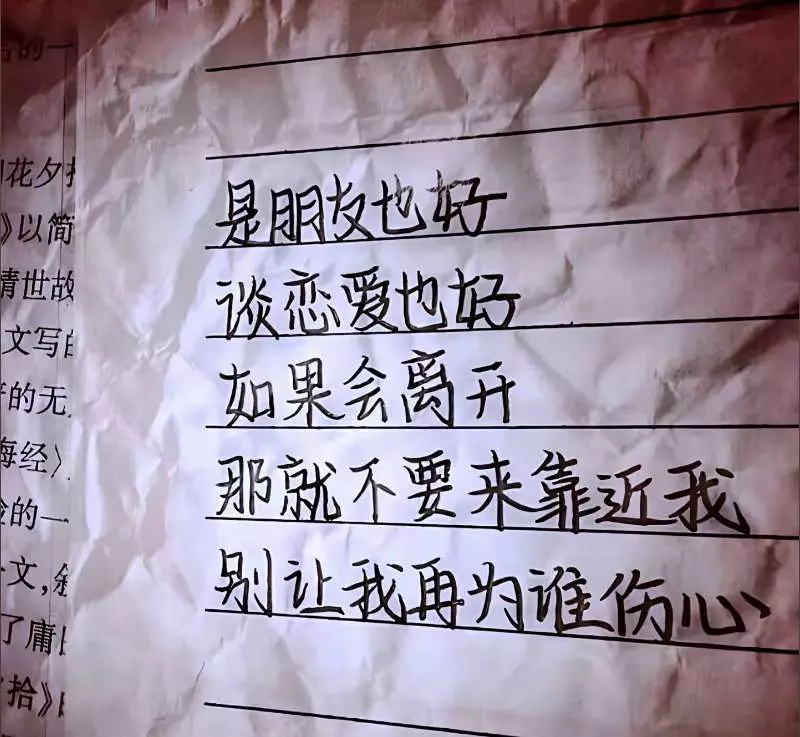 的一
花夕
》以简
情世故
文写
的无
海经》
的一
文,
了庸
拾》
是朋友也好
谈恋爱也好
如果会离开
那就不要来靠近我
别让我再为谁伤心